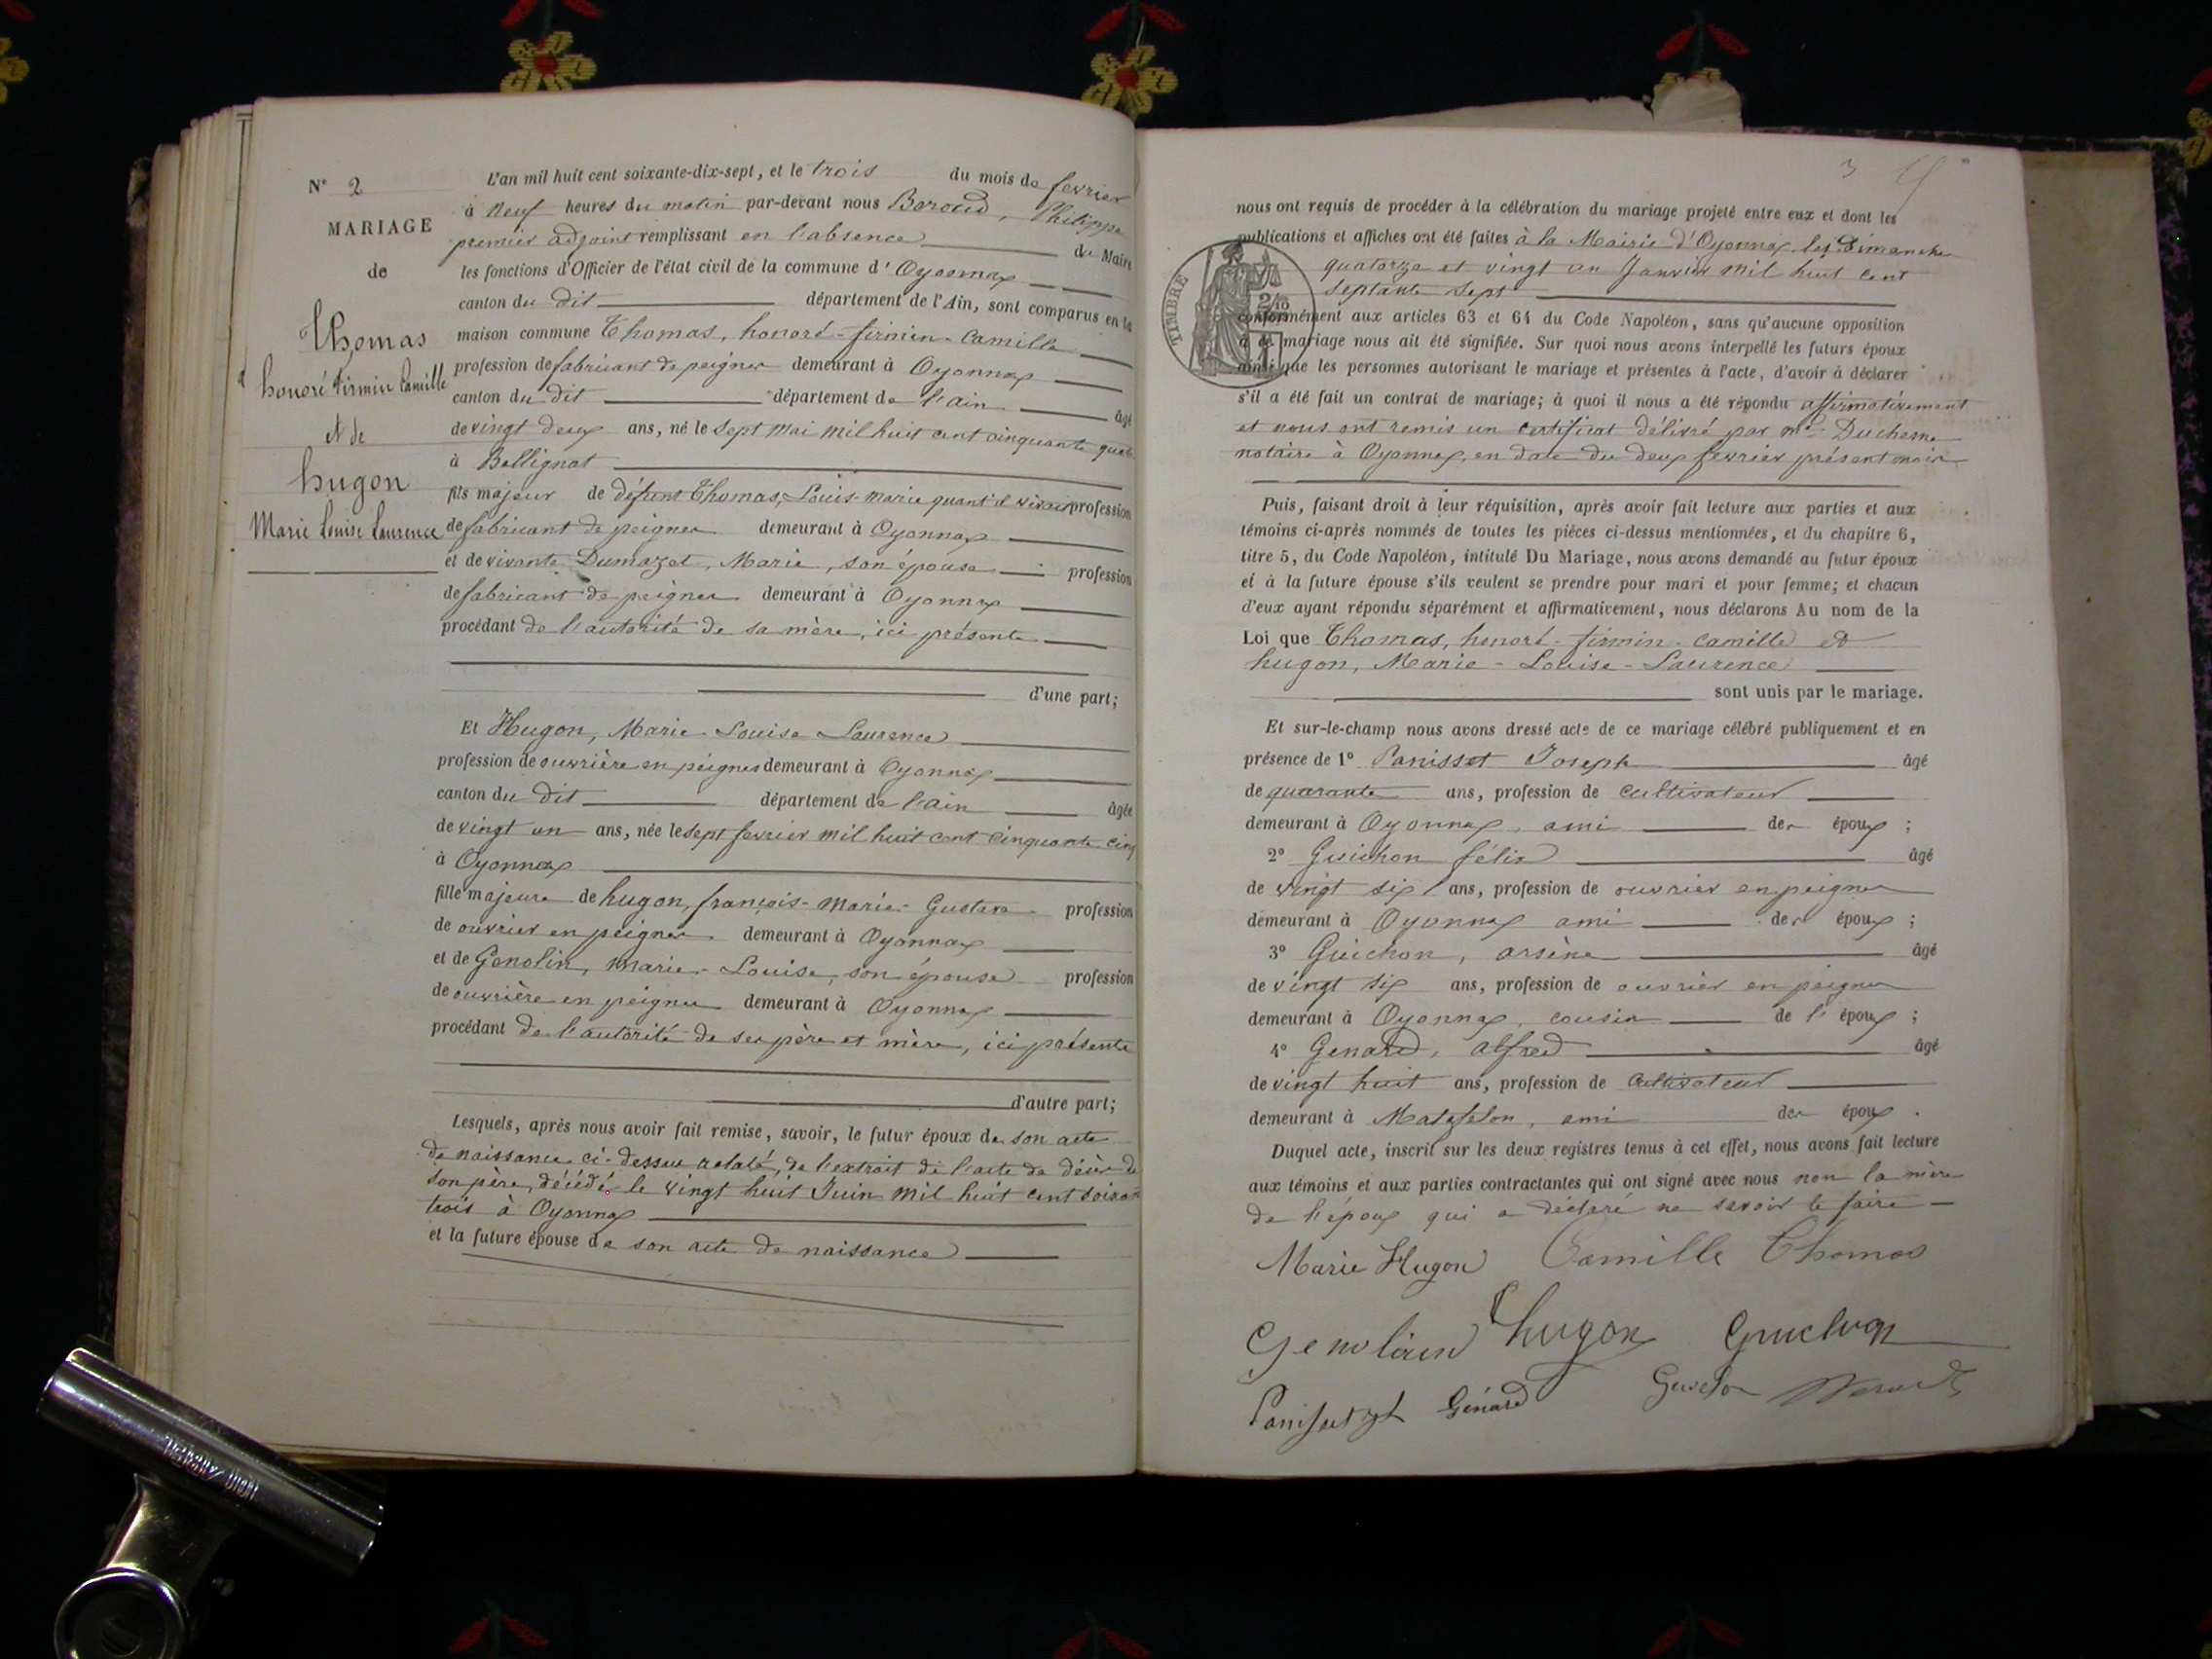 N° 2
MARIAGE
de
Thomas
honoré Firmin Camille
et de
hugon
Marie Louise Laurence
L'an mil huit cent soixante-dix-sept, et le trois du mois de fevrier
à Neuf heures du matin par-devant nous Beroud, Philippe
premier adjoint remplissant en l'absence du Maire
les fonctions d'Officier de l'état civil de la commune d'Oyonnax
canton du dit département de l'Ain, sont comparus en la
maison commune Thomas, honoré-firmin-Camille
profession de fabricant de peignes demeurant à Oyonnax
canton du dit département de l'ain âgé
de vingt deux ans, né le sept Mai mil huit cent cinquante quat
à Bellignat
fils majeur de défunt Thomas, Louis-Marie quand il vivait profession
de fabricant de peignes demeurant à Oyonnax
et de vivante Dumazet, Marie, son épouse profession
de fabricant de peignes demeurant à Oyonnax
procédant de l'autorité de sa mère, ici présente
d'une part;
Et Hugon, Marie-Louise Laurence
profession de ouvrière en peignes demeurant à Oyonnax
canton du dit département de l'ain âgée
de vingt un ans, née le sept fevrier mil huit cent cinquante cinq
à Oyonnax
fille majeure de hugon, françois-Marie-Gustave profession
de ouvrier en peignes demeurant à Oyonnax
et de Genolin, Marie-Louise, son épouse profession
de ouvrière en peignes demeurant à Oyonnax
procédant de l'autorité de ses père et mère, ici présents
d'autre part;
Lesquels, après nous avoir fait remise, savoir, le futur époux de son acte
de naissance ci-dessus relaté, de l'extrait de l'acte de décès de
son père, décédé le vingt huit Juin mil huit cent soixante
trois à Oyonnax
et la future épouse de son acte de naissance
3
nous ont requis de procéder à la célébration du mariage projeté entre eux et dont les
publications et affiches ont été faites à la Mairie d'Oyonnax les Dimanche
quatorze et vingt un Janvier mil huit cent
septante sept
TIMBRE
conformément aux articles 63 et 64 du Code Napoléon, sans qu'aucune opposition
à ce mariage nous ait été signifiée. Sur quoi nous avons interpellé les futurs époux
ainsi que les personnes autorisant le mariage et présentes à l'acte, d'avoir à déclarer
s'il a été fait un contrat de mariage; à quoi il nous a été répondu affirmativement
et nous ont remis un certificat délivré par me Duchesne
notaire à Oyonnax, en date du deux fevrier présent mois
Puis, faisant droit à leur réquisition, après avoir fait lecture aux parties et aux
témoins ci-après nommés de toutes les pièces ci-dessus mentionnées, et du chapitre 6,
titre 5, du Code Napoléon, intitulé Du Mariage, nous avons demandé au futur époux
et à la future épouse s'ils veulent se prendre pour mari et pour femme; et chacun
d'eux ayant répondu séparément et affirmativement, nous déclarons Au nom de la
Loi que Thomas, honoré-firmin-Camille et
hugon, Marie-Louise-Laurence
sont unis par le mariage.
Et sur-le-champ nous avons dressé acte de ce mariage célébré publiquement et en
présence de 1° Panisset Joseph âgé
de quarante ans, profession de cultivateur
demeurant à Oyonnax, ami des époux ;
2° Guichon félix âgé
de vingt six ans, profession de ouvrier en peignes
demeurant à Oyonnax ami des époux ;
3° Guichon, arsène âgé
de vingt six ans, profession de ouvrier en peignes
demeurant à Oyonnax, cousin de l'époux ;
4° Genard, alfred âgé
de vingt huit ans, profession de cultivateur
demeurant à Matafelon, ami des époux .
Duquel acte, inscrit sur les deux registres tenus à cet effet, nous avons fait lecture
aux témoins et aux parties contractantes qui ont signé avec nous non la mère
de l'époux qui a déclaré ne savoir le faire
Marie Hugon Camille Thomas
Genolin hugon Guichon
Panisset Génard Guichon